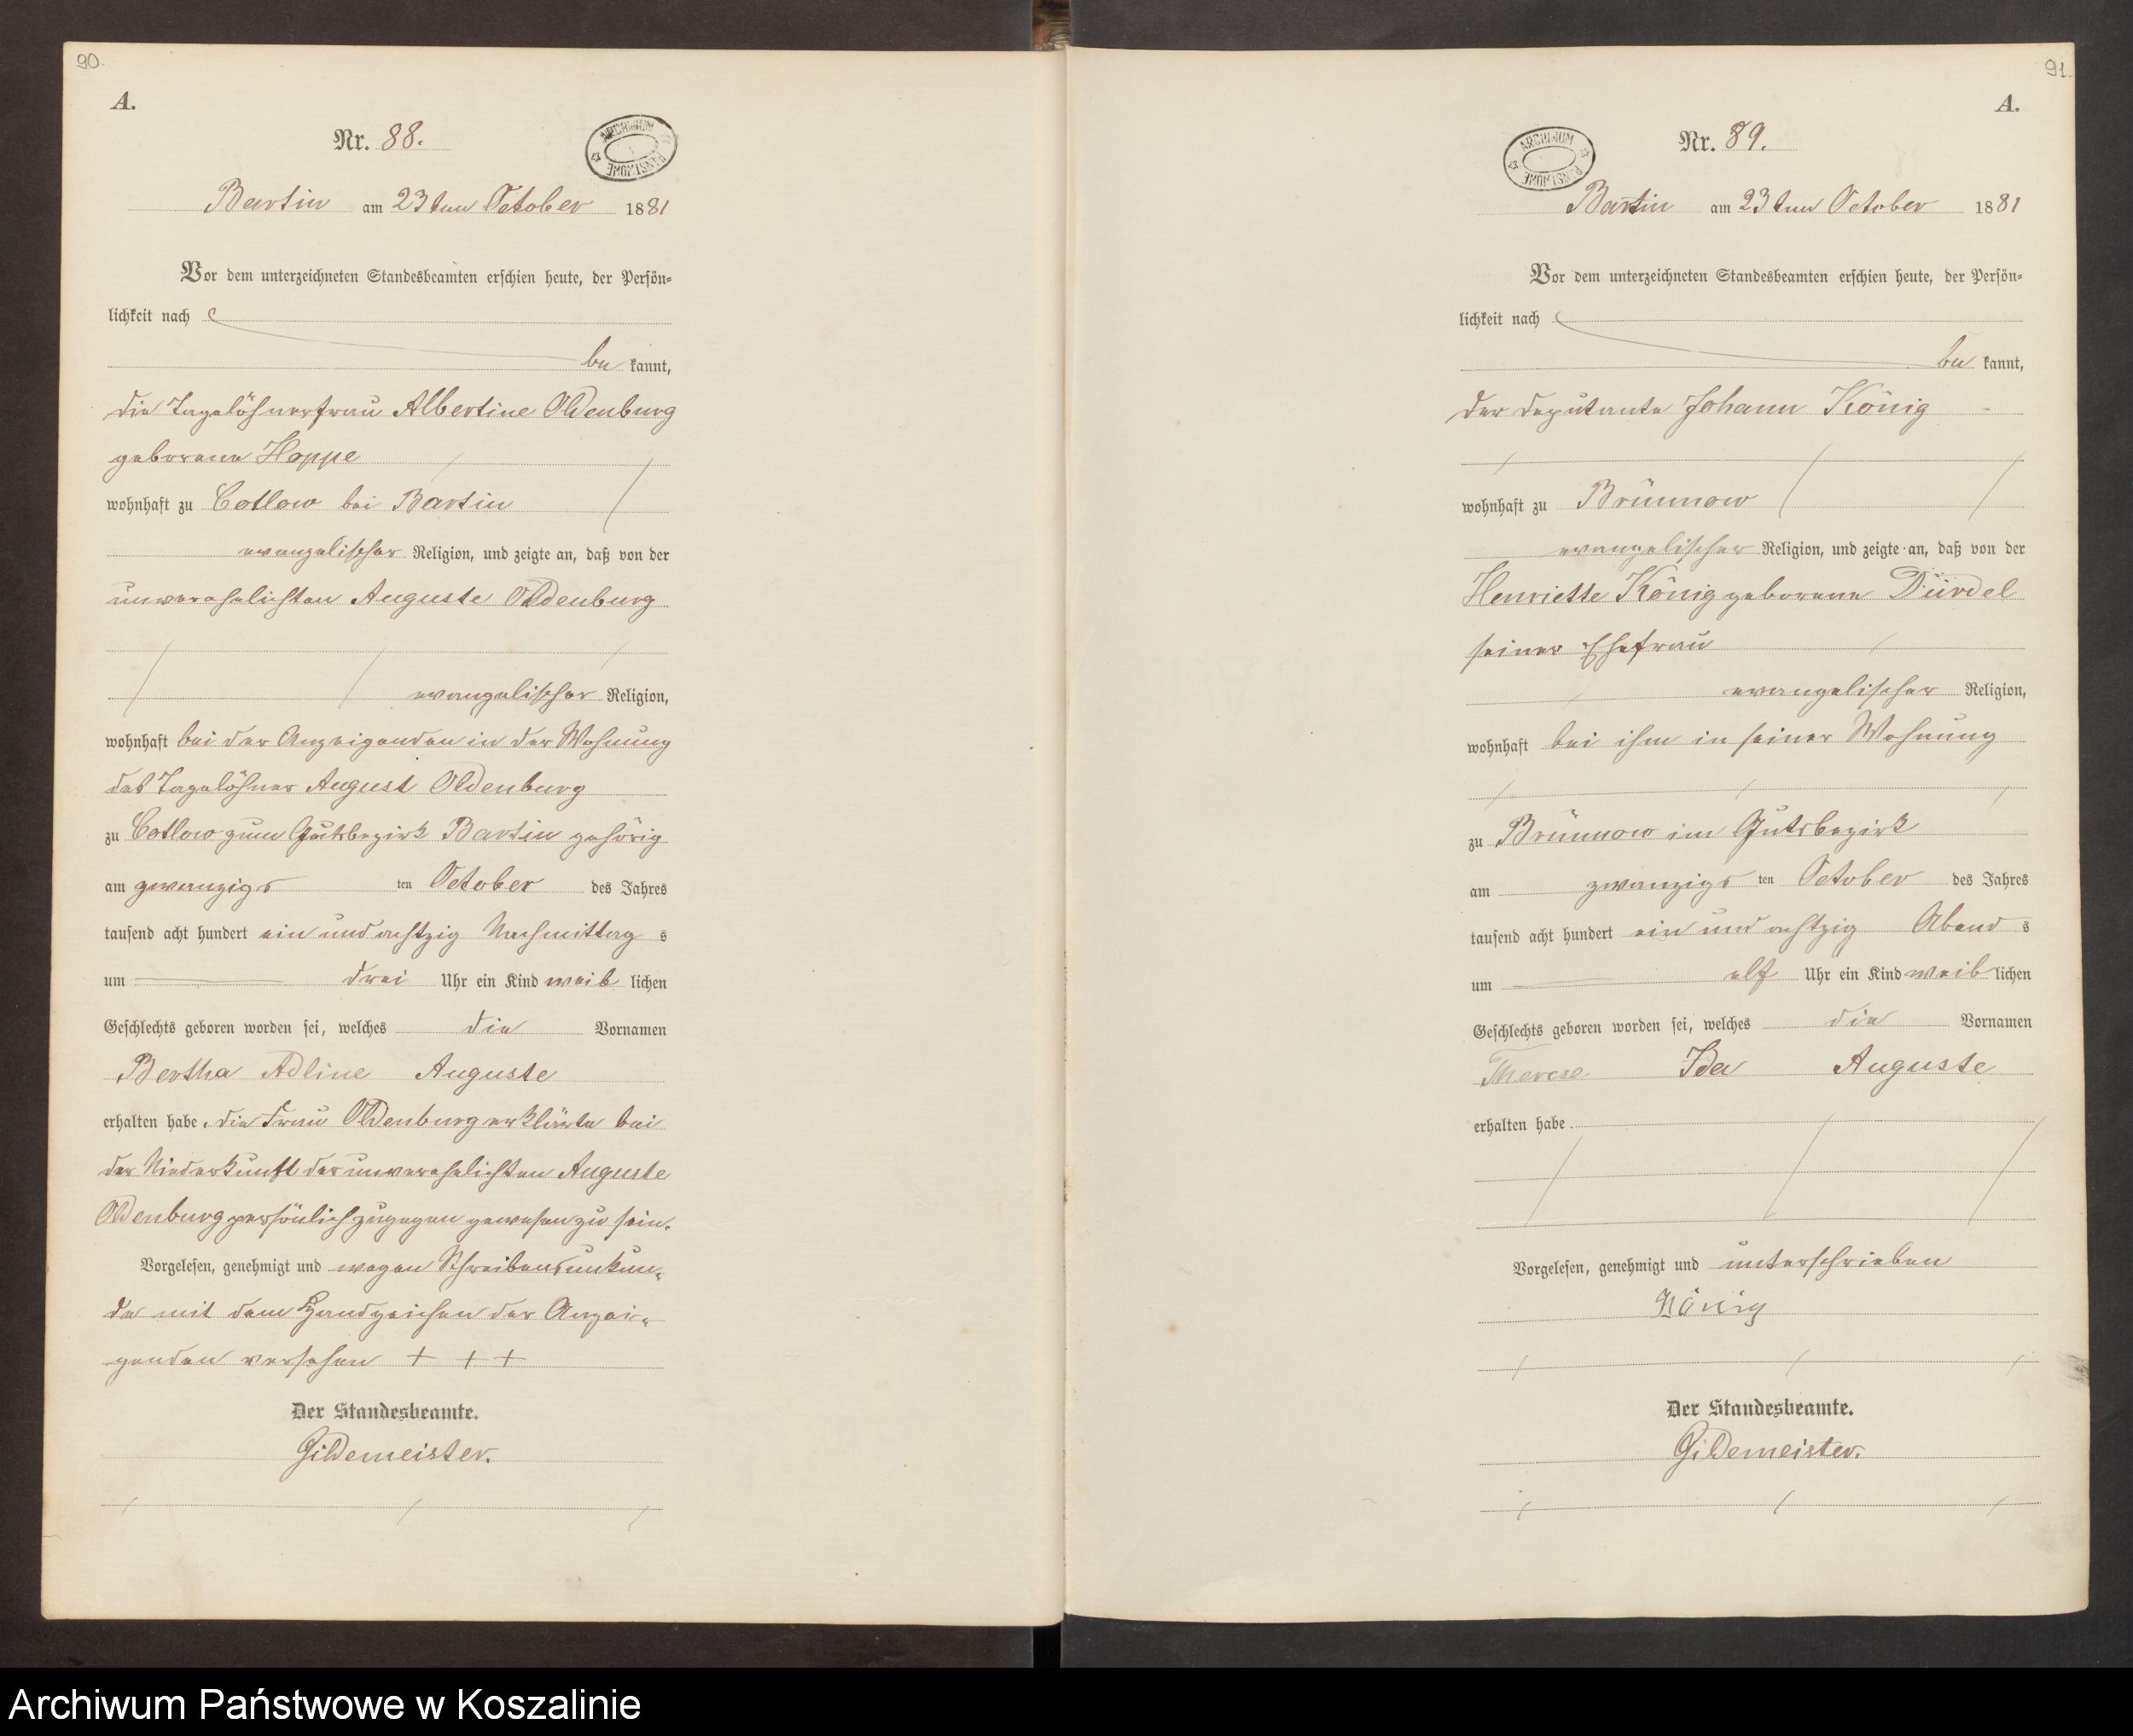 90.
A.
Nr. 88.
ARCHIWUM PAŃSTWOWE
Bartin am 23ten October 1881
Vor dem unterzeichneten Standesbeamten erschien heute, der Persön=
lichkeit nach
be kannt,
die Tagelöhnerfrau Albertine Oldenburg
geborene Hoppe
wohnhaft zu Cotlow bei Bartin
evangelischer Religion, und zeigte an, daß von der
unverehelichten Auguste Oldenburg
evangelischer Religion,
wohnhaft bei der Anzeigenden in der Wohnung
des Tagelöhner August Oldenburg
zu Cotlow zum Gutsbezirk Bartin gehörig
am zwanzigs ten October des Jahres
tausend acht hundert ein und achtzig Nachmittag s
um drei Uhr ein Kind weib lichen
Geschlechts geboren worden sei, welches die Vornamen
Bertha Adline Auguste
erhalten habe. die Frau Oldenburg erklärte bei
der Niederkunft der unverehelichten Auguste
Oldenburg persönlich zugegen gewesen zu sein.
Vorgelesen, genehmigt und wegen Schreibensunkun=
de mit dem Handzeichen der Anzei=
genden versehen + + +
Der Standesbeamte.
Gildemeister.
91.
A.
Nr. 89.
ARCHIWUM PAŃSTWOWE
Bartin am 23ten October 1881
Vor dem unterzeichneten Standesbeamten erschien heute, der Persön=
lichkeit nach
be kannt,
der Deputante Johann König
wohnhaft zu Brünnow
evangelischer Religion, und zeigte an, daß von der
Henriette König geborene Dürdel
seiner Ehefrau
evangelischer Religion,
wohnhaft bei ihm in seiner Wohnung
zu Brünnow im Gutsbezirk
am zwanzigs ten October des Jahres
tausend acht hundert ein und achtzig Abend s
um elf Uhr ein Kind weib lichen
Geschlechts geboren worden sei, welches die Vornamen
Therese Ida Auguste
erhalten habe.
Vorgelesen, genehmigt und unterschrieben
König
Der Standesbeamte.
Gildemeister.
Archiwum Państwowe w Koszalinie